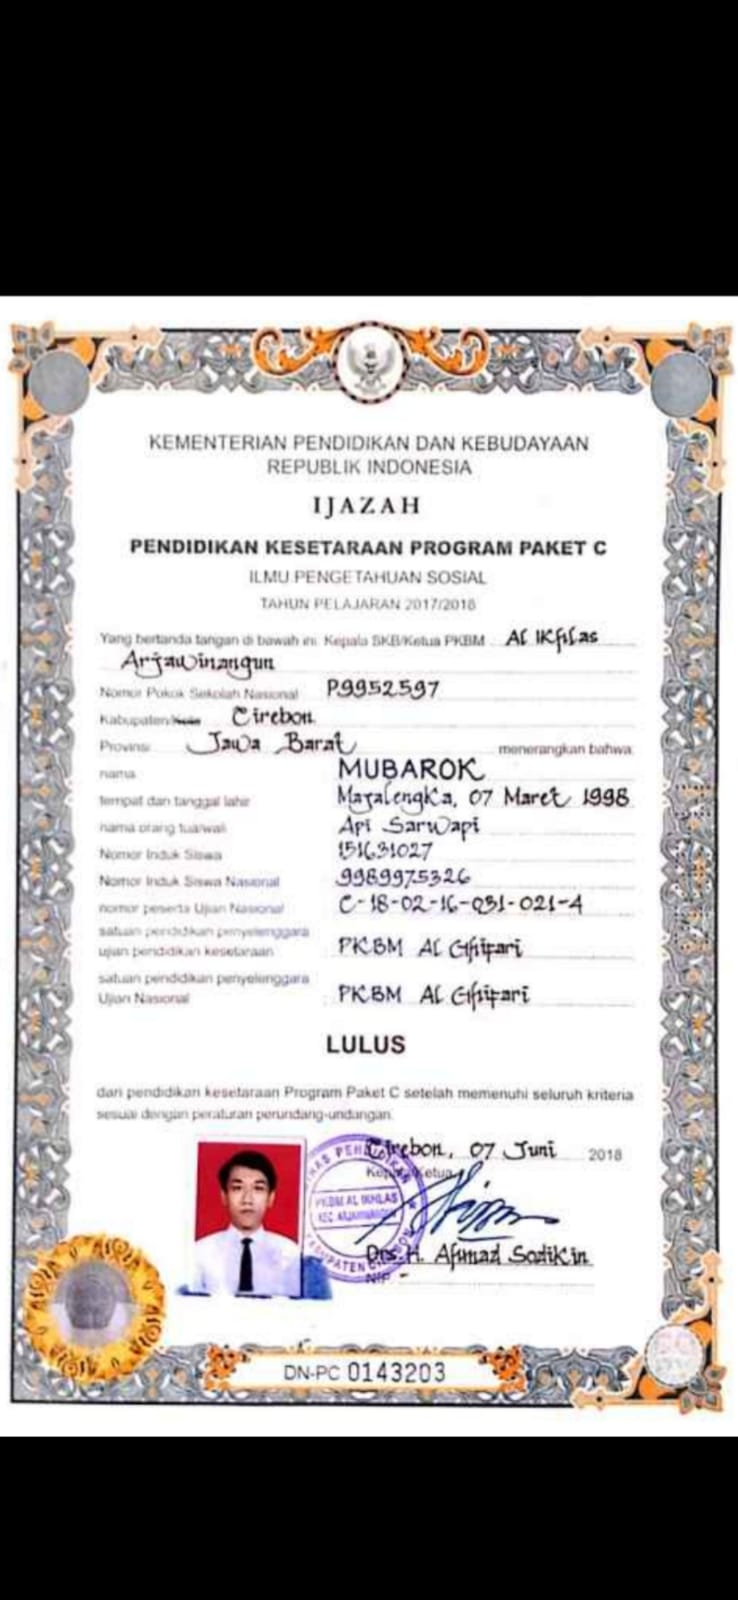 KEMENTERIAN PENDIDIKAN DAN KEBUDAYAAN
REPUBLIK INDONESIA
IJAZAH
PENDIDIKAN KESETARAAN PROGRAM PAKET C
ILMU PENGETAHUAN SOSIAL
TAHUN PELAJARAN 2017/2018
Yang bertanda tangan di bawah ini, Kepala SKB/Ketua PKBM Al Ikhlas
Arjawinangun
Nomor Pokok Sekolah Nasional P9952597
Kabupaten/Kota Cirebon
Provinsi Jawa Barat menerangkan bahwa:
nama MUBAROK
tempat dan tanggal lahir Majalengka, 07 Maret 1998
nama orang tua/wali Api Sarwapi
Nomor Induk Siswa 151631027
Nomor Induk Siswa Nasional 9989975326
nomor peserta Ujian Nasional C-18-02-16-031-021-4
satuan pendidikan penyelenggara
ujian pendidikan kesetaraan : PKBM Al Ghifari
satuan pendidikan penyelenggara
Ujian Nasional : PKBM Al Ghifari
LULUS
dari pendidikan kesetaraan Program Paket C setelah memenuhi seluruh kriteria
sesuai dengan peraturan perundang-undangan.
Cirebon, 07 Juni 2018
Kepala/Ketua
PKBM AL IKHLAS
KEC. ARJAWINANGUN
Drs. H. Ahmad Sodikin
NIP -
DN-PC 0143203